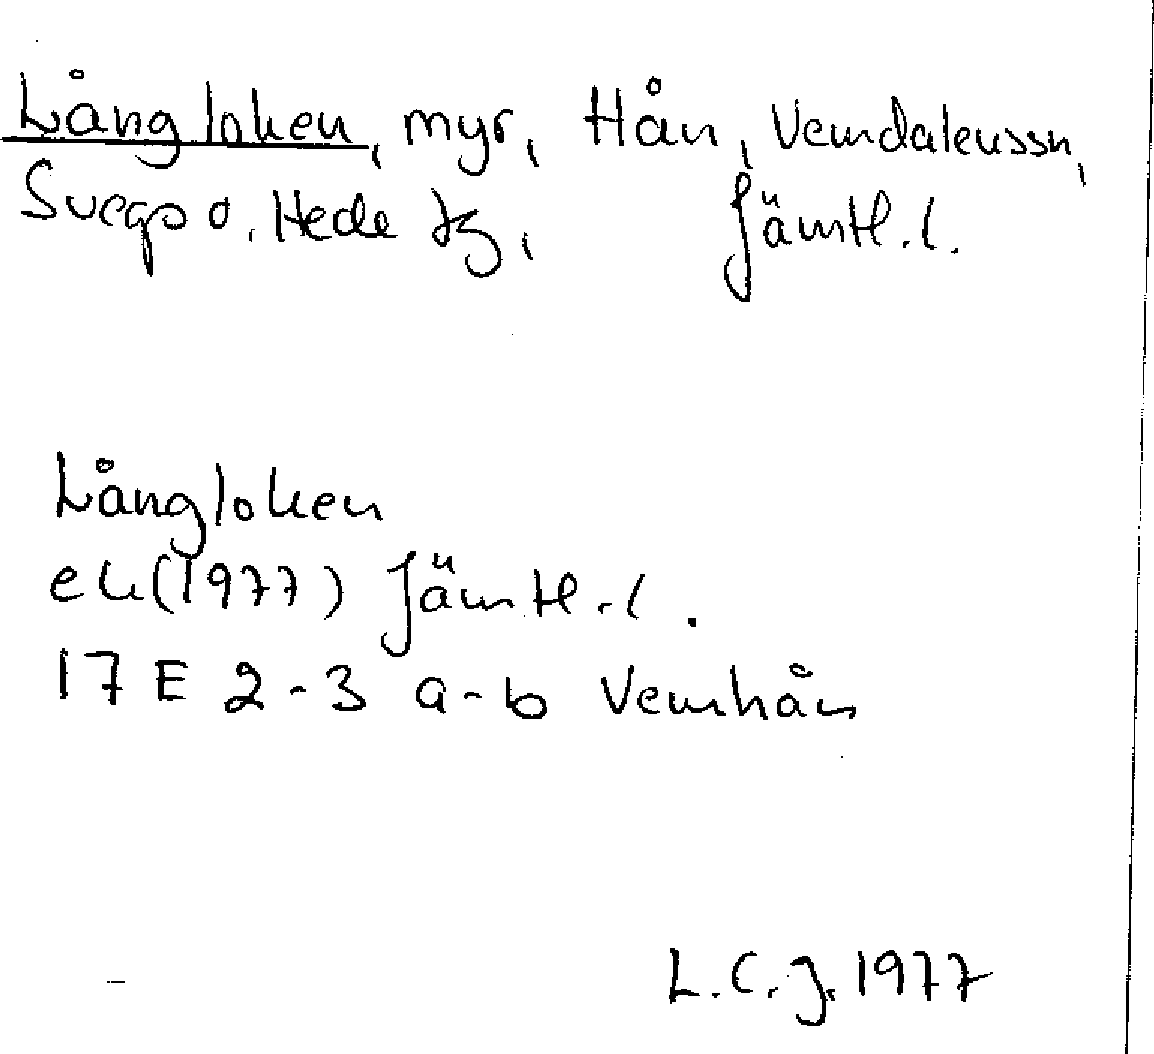 Långloken, myr, Hån, Vemdalenssn,
Svegs o. Hede tg, Jämtl.l.
Långloken
ek(1977) Jämtl.l.
17 E 2-3 a-b Vemhån
L.C.J. 1977